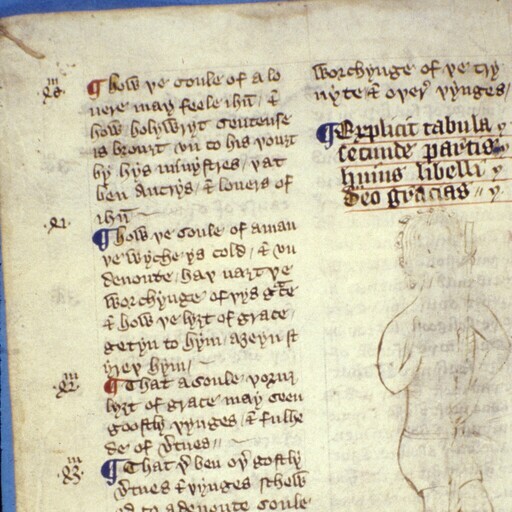 ¶ how ye soule of a lo
uere may feele ihū · &
how holywryt sentense
is brouzt vn to his youzt
by hys mynystres / yat
ben autrys / & louers of
ihū
¶ how ye soule of a man
ye wyche ys cold / & vn
deuoute / hay nazt ye
worchynge of yys gᵃce
& how ye lyzt of grace /
getyn to hym / azeyn st
yrey hym /
¶ That a soule yoruz
lyzt of grace may seen
goostly yynges / & fulhe
de of v̾tues //
¶ That yͤ ben oy̾ gostly
v̾tues & yynges schew
ed to a deuoute soule
worchynge of ye try
nyte & oyer yynges /
¶ Explicit tabula
secunde partis
huius libelli
deo gracias //